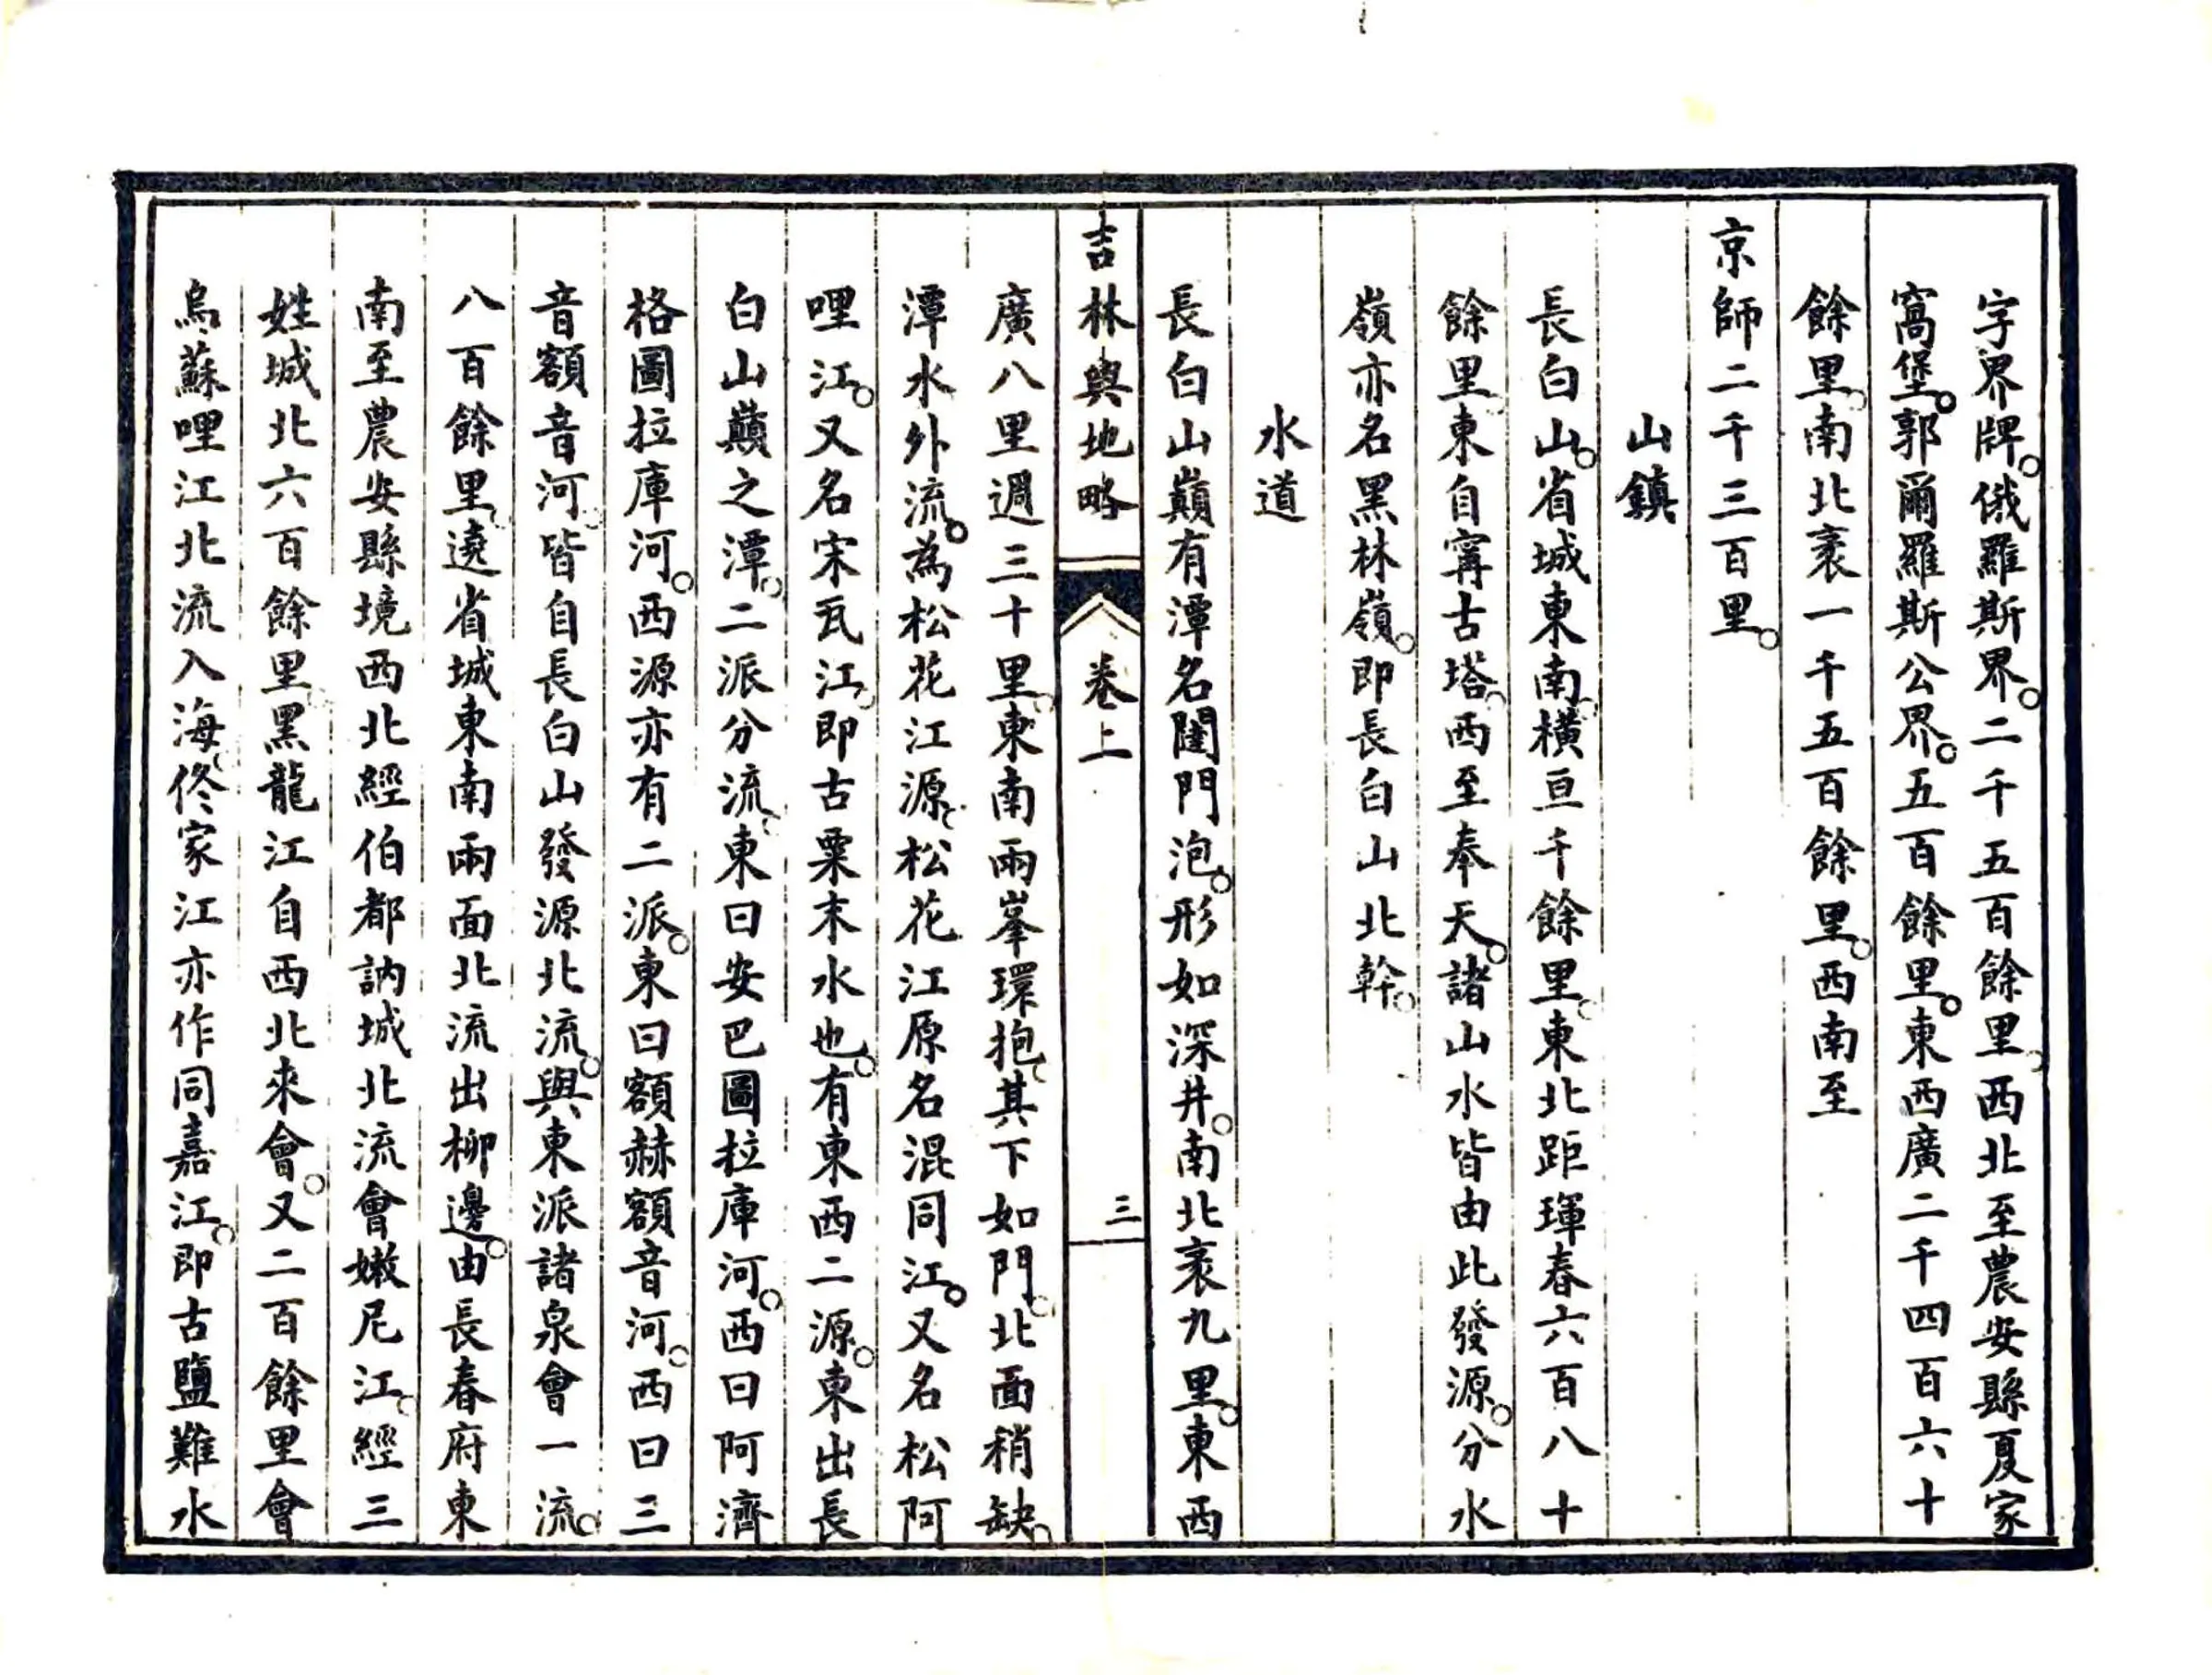 字界牌。俄羅斯界。二千五百餘里。西北至農安縣夏家
窩堡。郭爾羅斯公界。五百餘里。東西廣二千四百六十
餘里。南北袤一千五百餘里。西南至
京師二千三百里。
山鎮
長白山。省城東南。橫亘千餘里。東北距琿春六百八十
餘里。東自寗古塔。西至奉天。諸山水皆由此發源。分水
嶺亦名黑林嶺。即長白山北幹。
水道
長白山巔有潭名闥門泡。形如深井。南北袤九里。東西
吉林輿地略 卷上 三
廣八里週三十里。東南兩峯環抱。其下如門。北面稍缺。
潭水外流。為松花江源。松花江原名混同江。又名松阿
哩江。又名宋瓦江。即古粟末水也。有東西二源。東出長
白山巔之潭。二派分流。東曰安巴圖拉庫河。西曰阿濟
格圖拉庫河。西源亦有二派。東曰額赫額音河。西曰三
音額音河。皆自長白山發源北流。與東派諸泉會一流。
八百餘里。遶省城東南兩面北流出柳邊。由長春府東
南至農安縣境西北經伯都訥城北流會嫩尼江。經三
姓城北六百餘里。黑龍江自西北來會。又二百餘里會
烏蘇哩江北流入海。佟家江亦作同嘉江。即古鹽難水